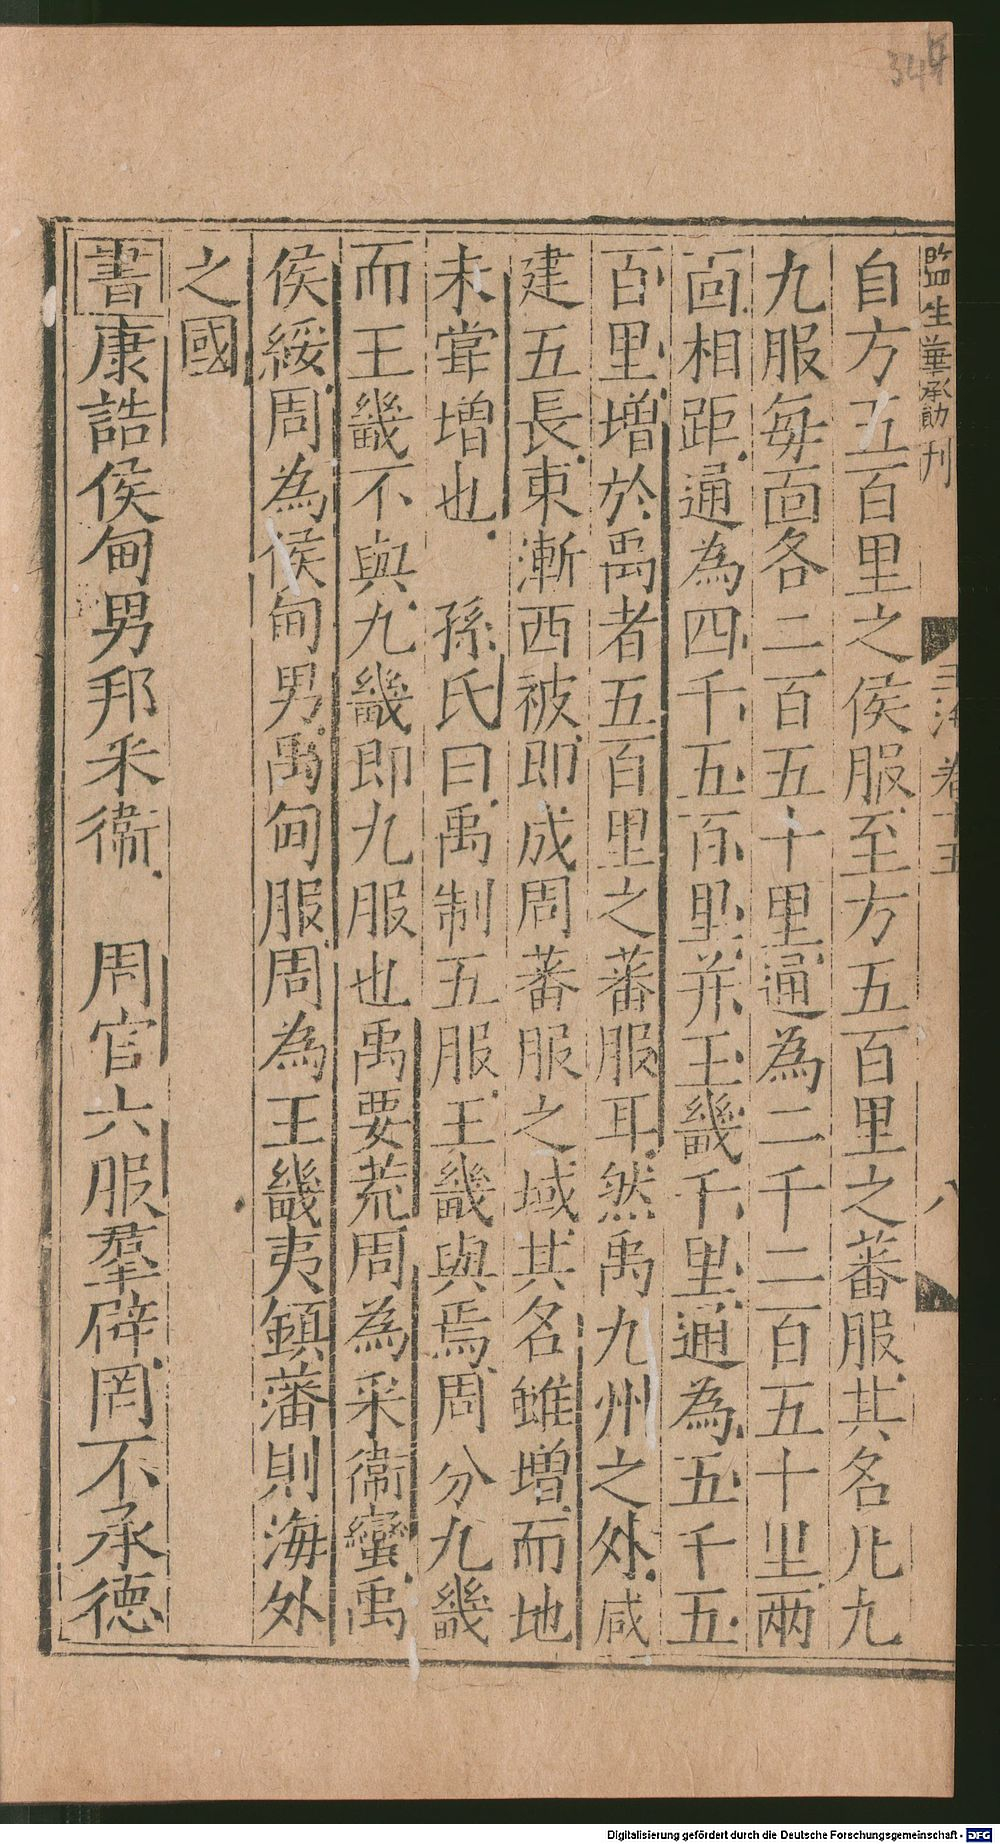 344
監生華承勛刊
玉海卷十五
八
自方五百里之侯服至方五百里之蕃服其名凡九
九服每面各二百五十里通為二千二百五十里兩
面相距通為四千五百里并王畿千里通為五千五
百里增於禹者五百里之蕃服耳然禹九州之外咸
建五長東漸西被即成周蕃服之域其名雖增而地
未甞增也 孫氏曰禹制五服王畿與焉周分九畿
而王畿不與九畿即九服也禹要荒周為采衞蠻禹
侯綏周為侯甸男禹甸服周為王畿夷鎮藩則海外
之國
書康誥侯甸男邦采衞 周官六服羣辟罔不承德
Digitalisierung gefördert durch die Deutsche Forschungsgemeinschaft - DFG